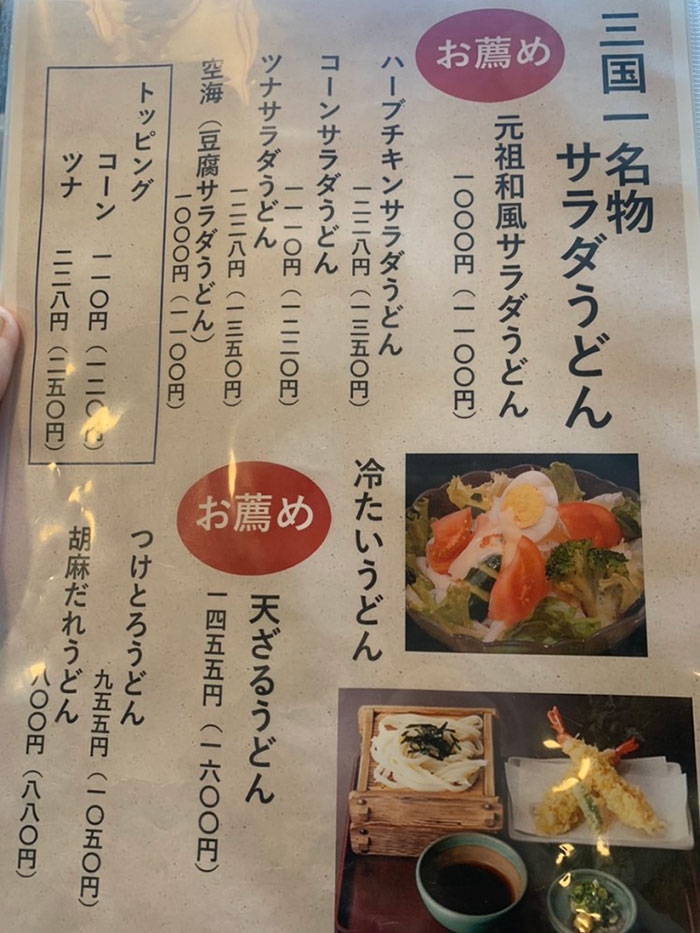 三国一名物
サラダうどん
お薦め
元祖和風サラダうどん
一〇〇〇円（一一〇〇円）
ハーブチキンサラダうどん
一二二八円（一三五〇円）
コーンサラダうどん
一一一〇円（一二二〇円）
ツナサラダうどん
一二二八円（一三五〇円）
空海（豆腐サラダうどん）
一〇〇〇円（一一〇〇円）
トッピング
コーン
一一〇円（一二〇円）
ツナ
二二八円（二五〇円）
冷たいうどん
お薦め
天ざるうどん
一四五五円（一六〇〇円）
つけとろうどん
九五五円（一〇五〇円）
胡麻だれうどん
八〇〇円（八八〇円）